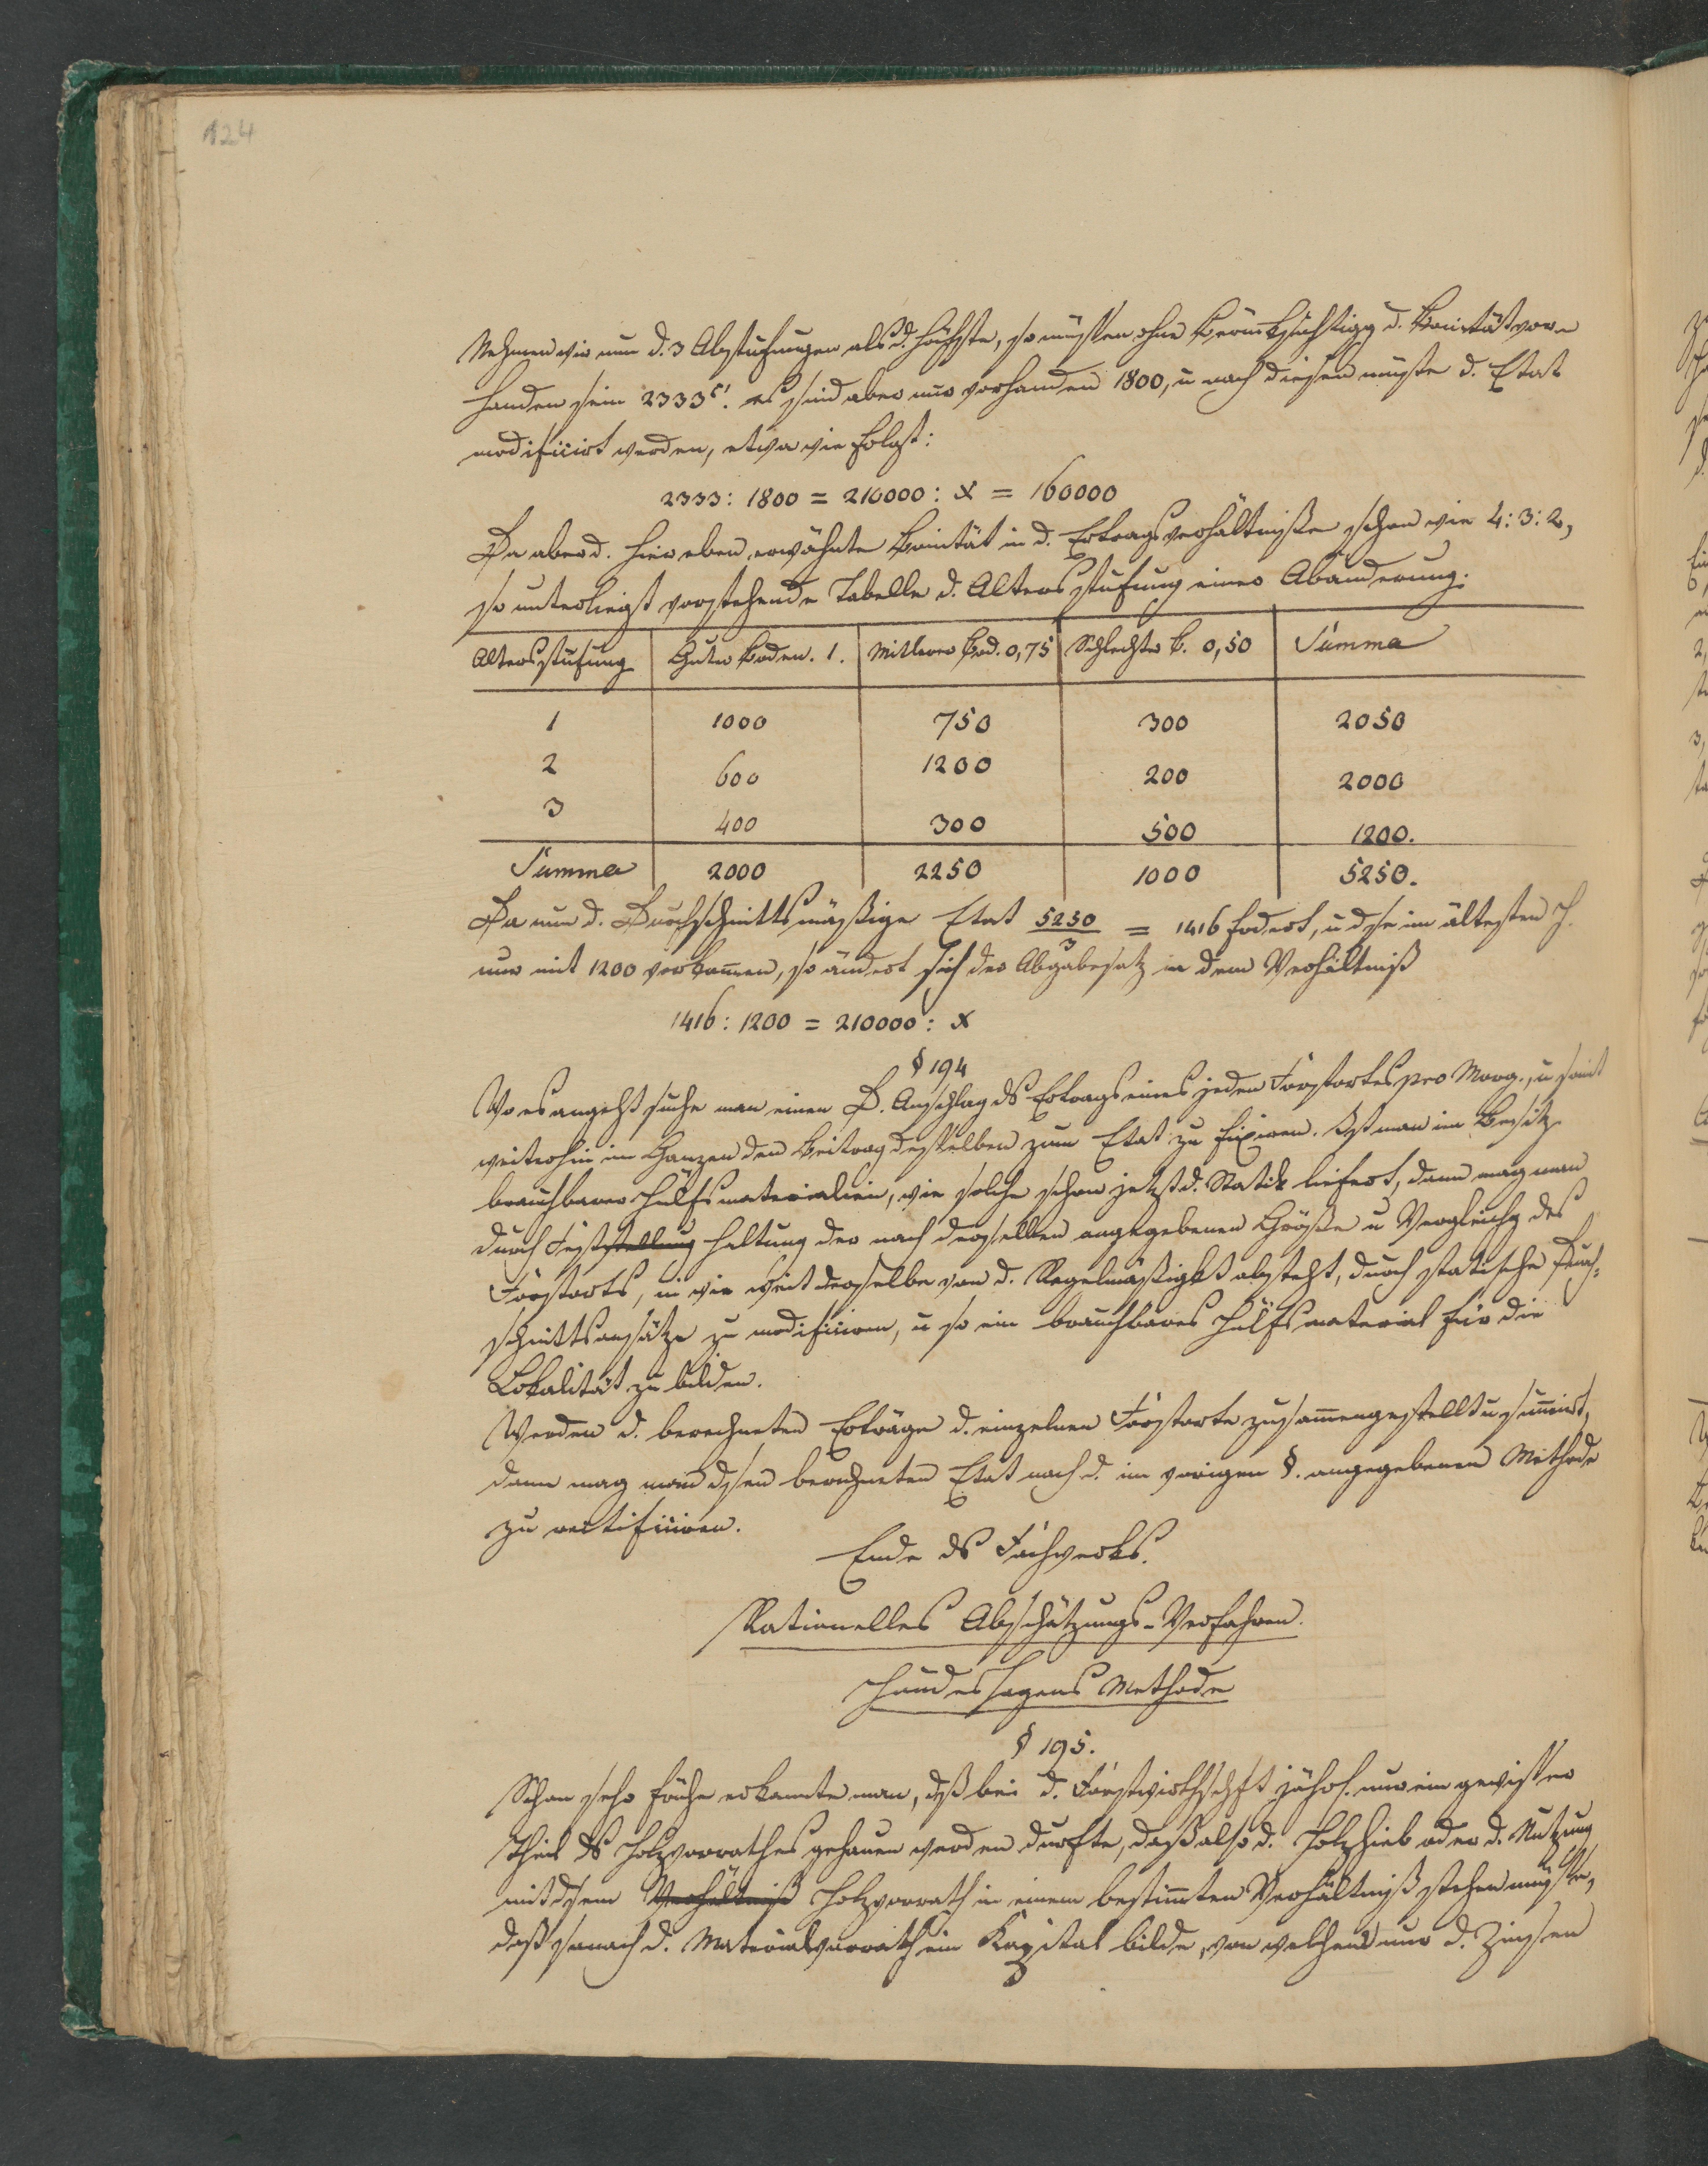 124
Nehmen wir nun d. 3 Abstufungen als d. höchste, so müßten ohne Berücksichtigg d. Bonität vor-
handen sein 2333 es sind aber nur vorhanden 1800, u nach diesen müßte d. Etat
modificirt werden, etwa wie folgt:
2333 : 1800 = 210000 : x = 160000
Da aber d. hier oben erwähnte Bonität in d. Ertragsverhältnissen schon wie 4:3:2,
so unterliegt vorstehende Tabelle d. Altersstufung einer Abänderung:
Altersstufung Guter Boden. 1. Mittlerer Bod. 0,75 Schlechter B. 0,50 Summa
1 1000 750 300 2050
2 600 1200 200 2000
3 400 300 500 1200.
Summa 2000 2250 1000 5250.
Da nun d. Durchschnittsmäßige Etat 5250/3 = 1416 fodert, u dse im ältesten H.
nur mit 1200 vorkommen, so ändert sich der Abgabesatz in dem Verhältniß
1416 : 1200 = 210000 : x
§ 194
Wo es angeht suche man einen D. Anschlag ds Ertrags eines jeden Forstortes pro Morg., u somit
weiterhin im Ganzen den Beitrag desselben zum Etat zu fixiren. Ist man im Besitz
brauchbarer Hülfsmaterialien, wie solche schon jetzt d. Statik liefert, dann mag man
durch Feststellung haltung der nach derselben angegebenen Größe u Vergleichg des
Forstorts, in wie weit derselbe von d. Regelmäßigkt absteht, durch statische Durch-
schnittsansätze zu modificiren, u so ein brauchbares Hülfsmaterial für die
Lokalität zu bilden.
Werden d. berechneten Erträge d. einzelnen Forstorte zusammengestellt u summirt,
dann mag man dsen berechneten Etat nach d. im vorigen §. angegebenen Methode
zu rectificiren.
Ende ds Fachwerks.
Rationelles Abschätzungs-Verfahren.
Hundeshagens Methode
§ 195.
Schon sehr frühe erkannte man, dß bei d. Forstwirthschft jährl. nur ein gewisser
Theil ds Holzvorrathes gehauen werden durfte, daß also d. Holzhieb oder d. Nutzung
mit dsem Verhältniß Holzvorrath in einem bestimmten Verhältniß stehen müßte,
daß sonach d. Materialvorrath ein Kapital bilde, von welchem nur d. Zinsen